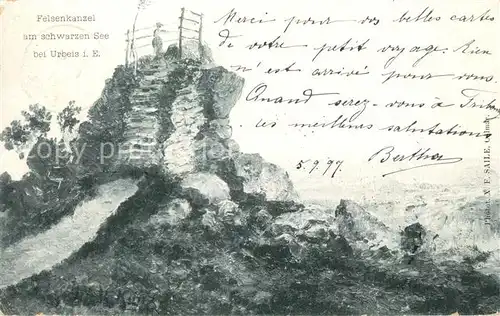 Felsenkanzel
am schwarzen See
bei Urbeis i. E.
Merci pour vos belles cartes
de votre petit voyage. Rien
n'est arrivé pour vous.
Quand serez-vous à
Les meilleures salutations
Bertha
5.9.97